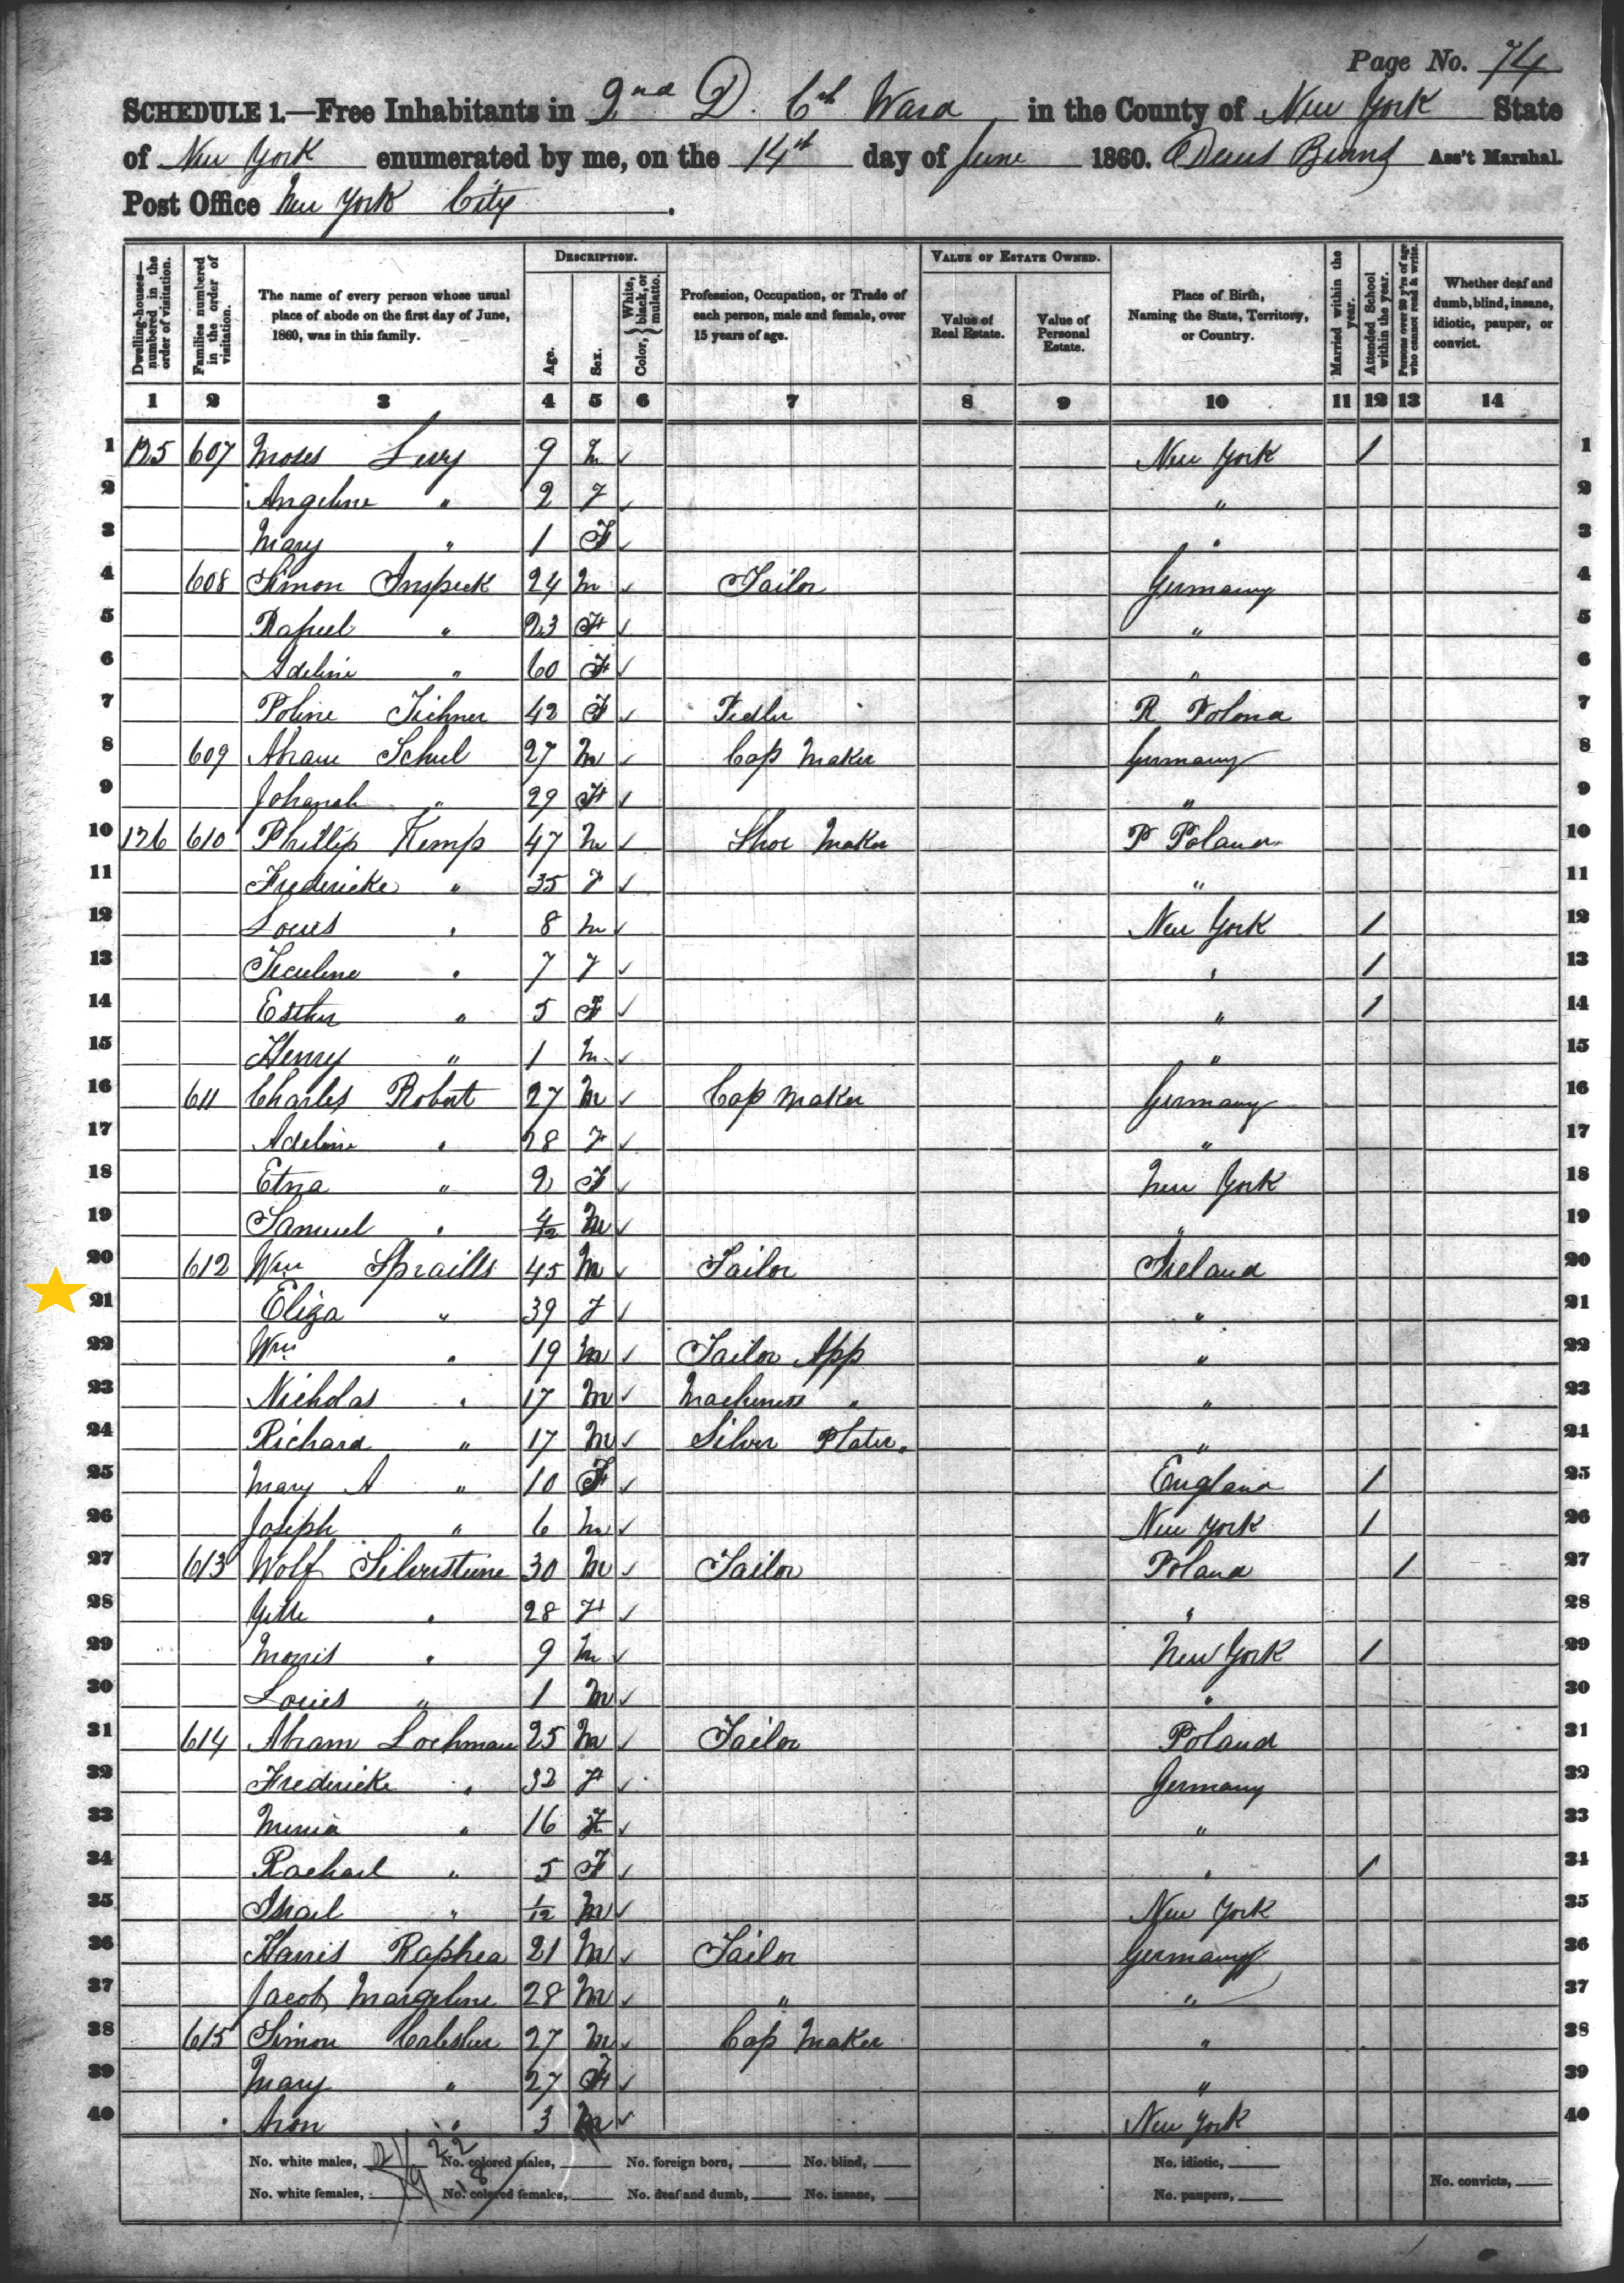 Page No. 74
SCHEDULE 1.—Free Inhabitants in 2nd D. 6th Ward in the County of New York State
of New York enumerated by me, on the 14th day of June 1860. Ass't Marshal.
Post Office New York City.
DESCRIPTION. VALUE OF ESTATE OWNED.
Dwelling-houses—numbered in the order of visitation.
Families numbered in the order of visitation.
The name of every person whose usual place of abode on the first day of June, 1860, was in this family.
Age.
Sex.
Color, { White, black, or mulatto.
Profession, Occupation, or Trade of each person, male and female, over 15 years of age.
Value of Real Estate.
Value of Personal Estate.
Place of Birth, Naming the State, Territory, or Country.
Married within the year.
Attended School within the year.
Persons over 20 y'rs of age who cannot read & write.
Whether deaf and dumb, blind, insane, idiotic, pauper, or convict.
1 2 3 4 5 6 7 8 9 10 11 12 13 14
1 125 607 Moses Levy 9 M ✓ New York / 1
2 Angeline " 2 F ✓ " 2
3 Mary " 1 F ✓ " 3
4 608 Simon Inspeck 24 M ✓ Tailor Germany 4
5 " 23 F ✓ " 5
6 Adeline " 60 F ✓ " 6
7 Poline Tichner 42 F ✓ Pedler R Polond 7
8 609 Abram Schul 27 M ✓ Cap Maker Germany 8
9 Johanah " 29 F ✓ " 9
10 126 610 Phillip Kemp 47 M ✓ Shoe Maker P Poland 10
11 Fredericke " 35 F ✓ " 11
12 Louis " 8 M ✓ New York / 12
13 " 7 F ✓ " / 13
14 Esther " 5 F ✓ " / 14
15 Henry " 1 M ✓ " 15
16 611 Charles Robert 27 M ✓ Cap Maker Germany 16
17 Adeline " 28 F ✓ " 17
18 Etna " 2 F ✓ New York 18
19 Samuel " 4/12 M ✓ " 19
20 612 Wm Spraills 45 M ✓ Tailor Ireland 20
21 Eliza " 39 F ✓ " 21
22 Wm " 19 M ✓ Tailor App " 22
23 Nicholas " 17 M ✓ Machinest " " 23
24 Richard " 17 M ✓ Silver Plater " " 24
25 Mary A " 10 F ✓ England / 25
26 Joseph " 6 M ✓ New York / 26
27 613 Wolf Silverstine 30 M ✓ Tailor Poland / 27
28 Gette " 28 F ✓ " 28
29 Morris " 9 M ✓ New York / 29
30 Louies " 1 M ✓ " 30
31 614 Abram Lochman 25 M ✓ Tailor Poland 31
32 Fredericke " 32 F ✓ Germany 32
33 " 16 F ✓ " 33
34 Rachael " 5 F ✓ " / 34
35 Israel " 1/12 M ✓ New York 35
36 Harris Raphea 21 M ✓ Tailor Germany 36
37 Jacob Margeline 28 M ✓ " " 37
38 615 Simon 27 M ✓ Cap Maker " 38
39 Mary " 27 F ✓ " 39
40 Aron " 3 M ✓ New York 40
No. white males, 21 22 No. colored males, No. foreign born, No. blind, No. idiotic,
No. white females, 19 18 No. colored females, No. deaf and dumb, No. insane, No. paupers, No. convicts,